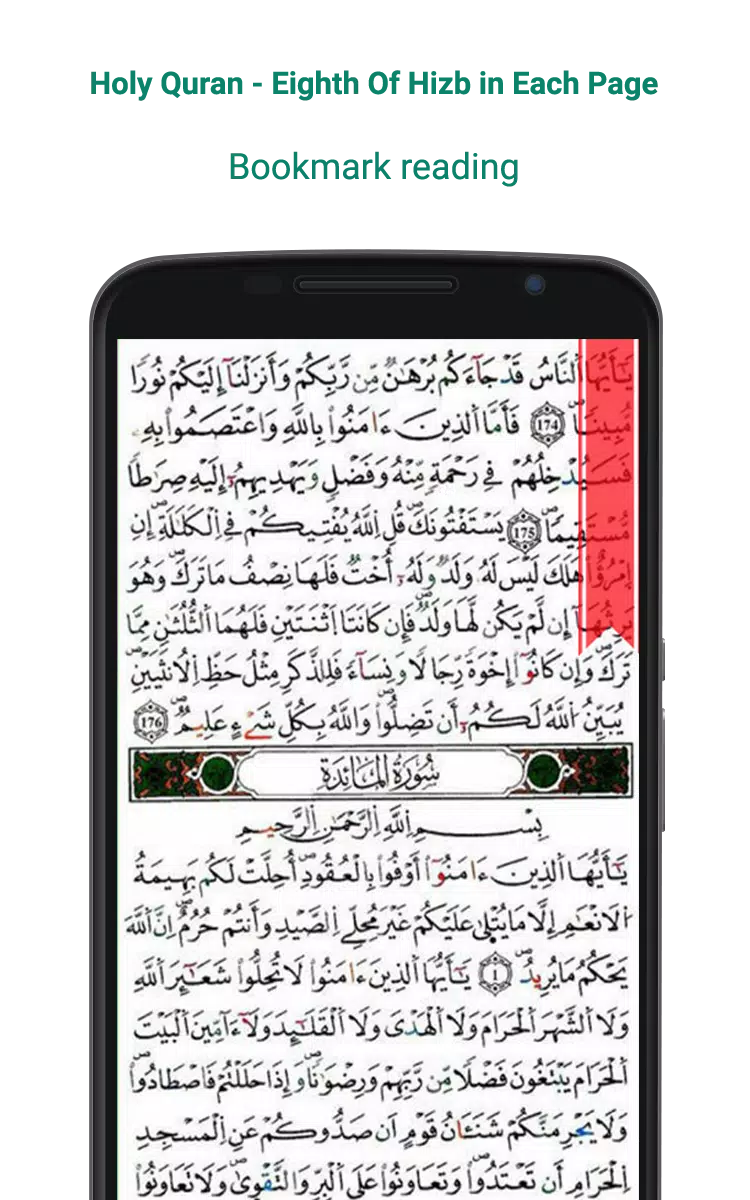 Holy Quran - Eighth Of Hizb in Each Page
Bookmark reading
يَٰٓأَيُّهَا اَ۬لنَّاسُ قَدْ جَآءَكُم بُرْهَٰنٞ مِّن رَّبِّكُمْ وَأَنزَلْنَآ إِلَيْكُمْ نُوراٗ
مُّبِيناٗۖ 174 فَأَمَّا اَ۬لذِينَ ءَامَنُواْ بِاللَّهِ وَاعْتَصَمُواْ بِهِۦ
فَسَيُدْخِلُهُمْ فِے رَحْمَةٖ مِّنْهُ وَفَضْلٖ وَيَهْدِيهِمُۥٓ إِلَيْهِ صِرَٰطاٗ
مُّسْتَقِيماٗۖ 175 يَسْتَفْتُونَكَۖ قُلِ اِ۬للَّهُ يُفْتِيكُمْ فِے اِ۬لْكَلَٰلَةِۖ إِنِ
اِ۪مْرُؤٌاْ هَلَكَ لَيْسَ لَهُۥ وَلَدٞ وَلَهُۥٓ أُخْتٞ فَلَهَا نِصْفُ مَا تَرَكَۖ وَهُوَ
يَرِثُهَآ إِن لَّمْ يَكُن لَّهَا وَلَدٞۖ فَإِن كَانَتَا اَ۪ثْنَتَيْنِ فَلَهُمَا اَ۬لثُّلُثَٰنِ مِمَّا
تَرَكَۖ وَإِن كَانُوٓاْ إِخْوَةٗ رِّجَالاٗ وَنِسَآءٗ فَلِلذَّكَرِ مِثْلُ حَظِّ اِ۬لُانثَيَيْنِۖ
يُبَيِّنُ اُ۬للَّهُ لَكُمُۥٓ أَن تَضِلُّواْۖ وَاللَّهُ بِكُلِّ شَےْءٍ عَلِيمٞۖ 176
سُورَةُ المَائِدَةِ
بِسْمِ اِ۬للَّهِ اِ۬لرَّحْمَٰنِ اِ۬لرَّحِيمِ
يَٰٓأَيُّهَا اَ۬لذِينَ ءَامَنُوٓاْ أَوْفُواْ بِالْعُقُودِۖ أُحِلَّتْ لَكُم بَهِيمَةُ
اُ۬لَانْعَٰمِ إِلَّا مَا يُتْلَىٰ عَلَيْكُمْ غَيْرَ مُحِلِّے اِ۬لصَّيْدِ وَأَنتُمْ حُرُمٌۖ اِنَّ اَ۬للَّهَ
يَحْكُمُ مَا يُرِيدُۖ 1 يَٰٓأَيُّهَا اَ۬لذِينَ ءَامَنُواْ لَا تُحِلُّواْ شَعَٰٓئِرَ اَ۬للَّهِ
وَلَا اَ۬لشَّهْرَ اَ۬لْحَرَامَ وَلَا اَ۬لْهَدْىَ وَلَا اَ۬لْقَلَٰٓئِدَ وَلَآ ءَآمِّينَ اَ۬لْبَيْتَ
اَ۬لْحَرَامَ يَبْتَغُونَ فَضْلاٗ مِّن رَّبِّهِمْ وَرِضْوَٰناٗۖ وَإِذَا حَلَلْتُمْ فَاصْطَادُواْۖ
وَلَا يَجْرِمَنَّكُمْ شَنَـَٔانُ قَوْمٍ اَن صَدُّوكُمْ عَنِ اِ۬لْمَسْجِدِ
اِ۬لْحَرَامِ أَن تَعْتَدُواْۖ وَتَعَاوَنُواْ عَلَى اَ۬لْبِرِّ وَالتَّقْو۪ىٰۖ وَلَا تَعَاوَنُواْ